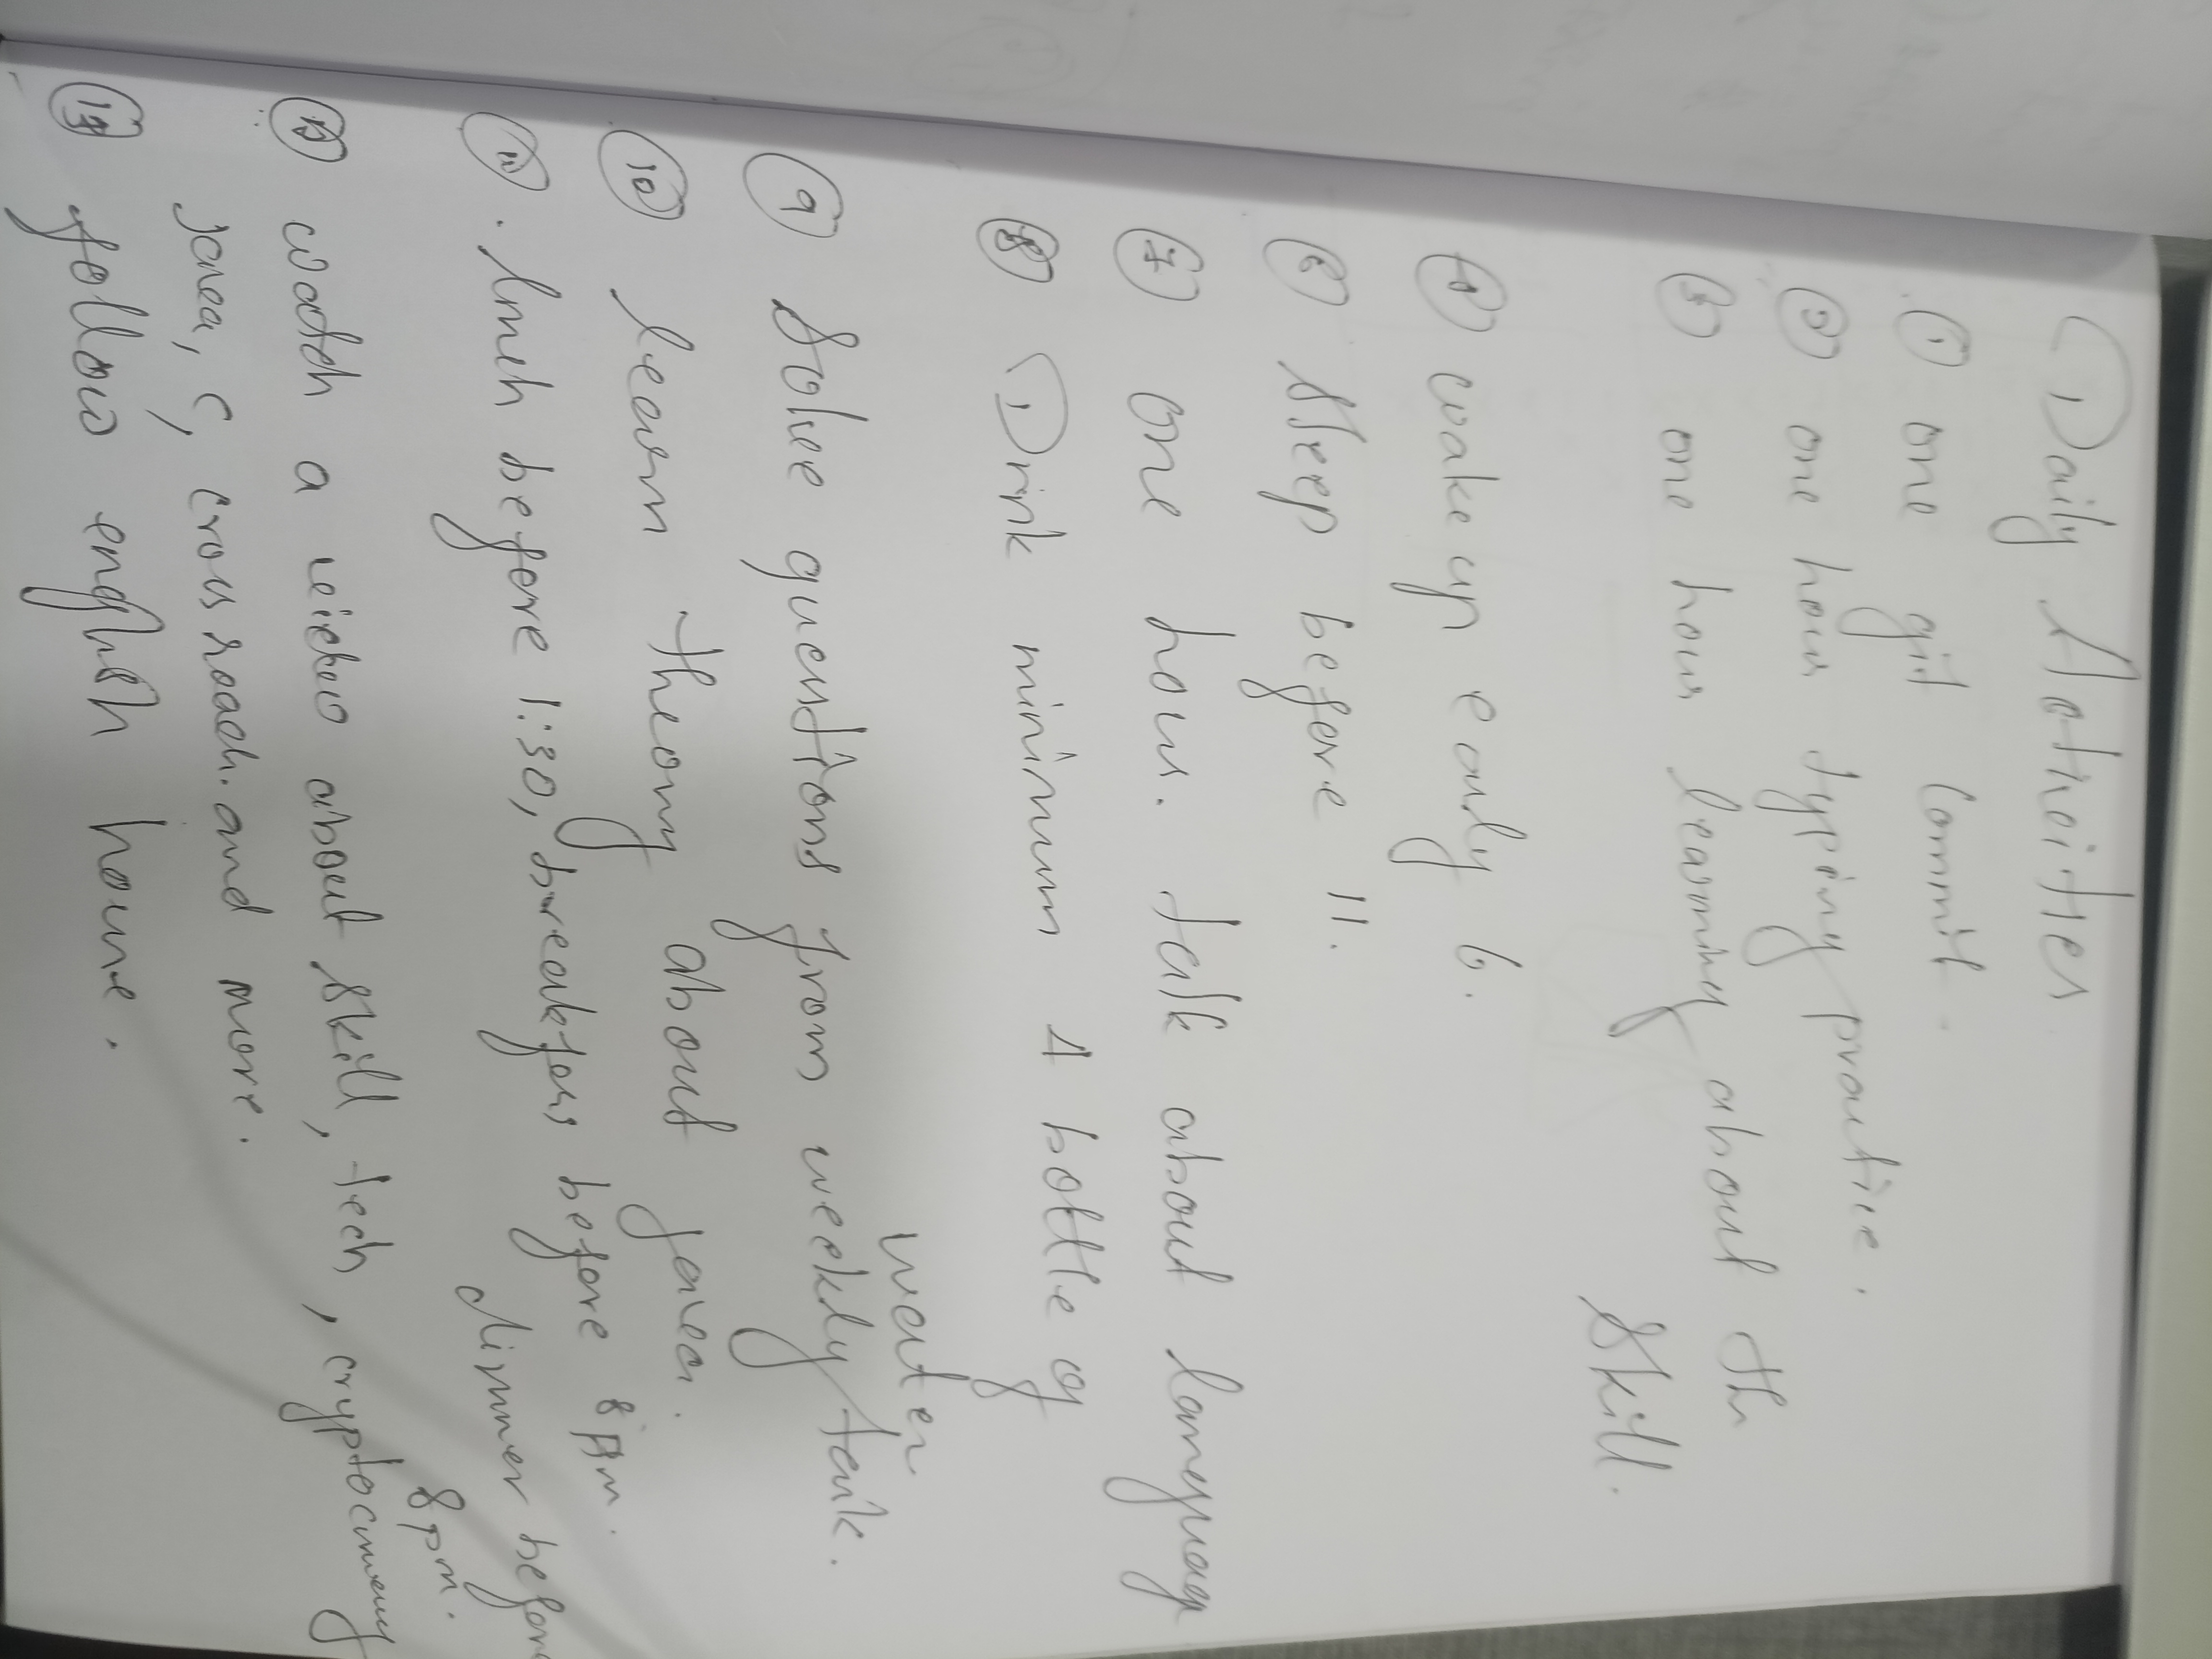 Daily Activities
① one git Commit.
② one hour typing practice.
③ one hour learning about th
skill.
wake up early 6.
⑥ Sleep before 11.
⑦ one hour. talk about language
⑧ Drink minimum 4 bottle of
water
⑨ Solve questions from weekly task.
⑩ learn theory about java.
⑪ . lunch before 1:30, breakfast before 8 pm.
dinner before
8 pm.
watch a video about skill, tech, cryptocurrency
java, C, cross roach. and more.
follow english hour.